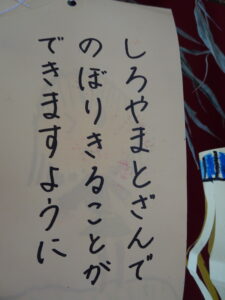 しろやまとざんで
のぼりきることが
できますように